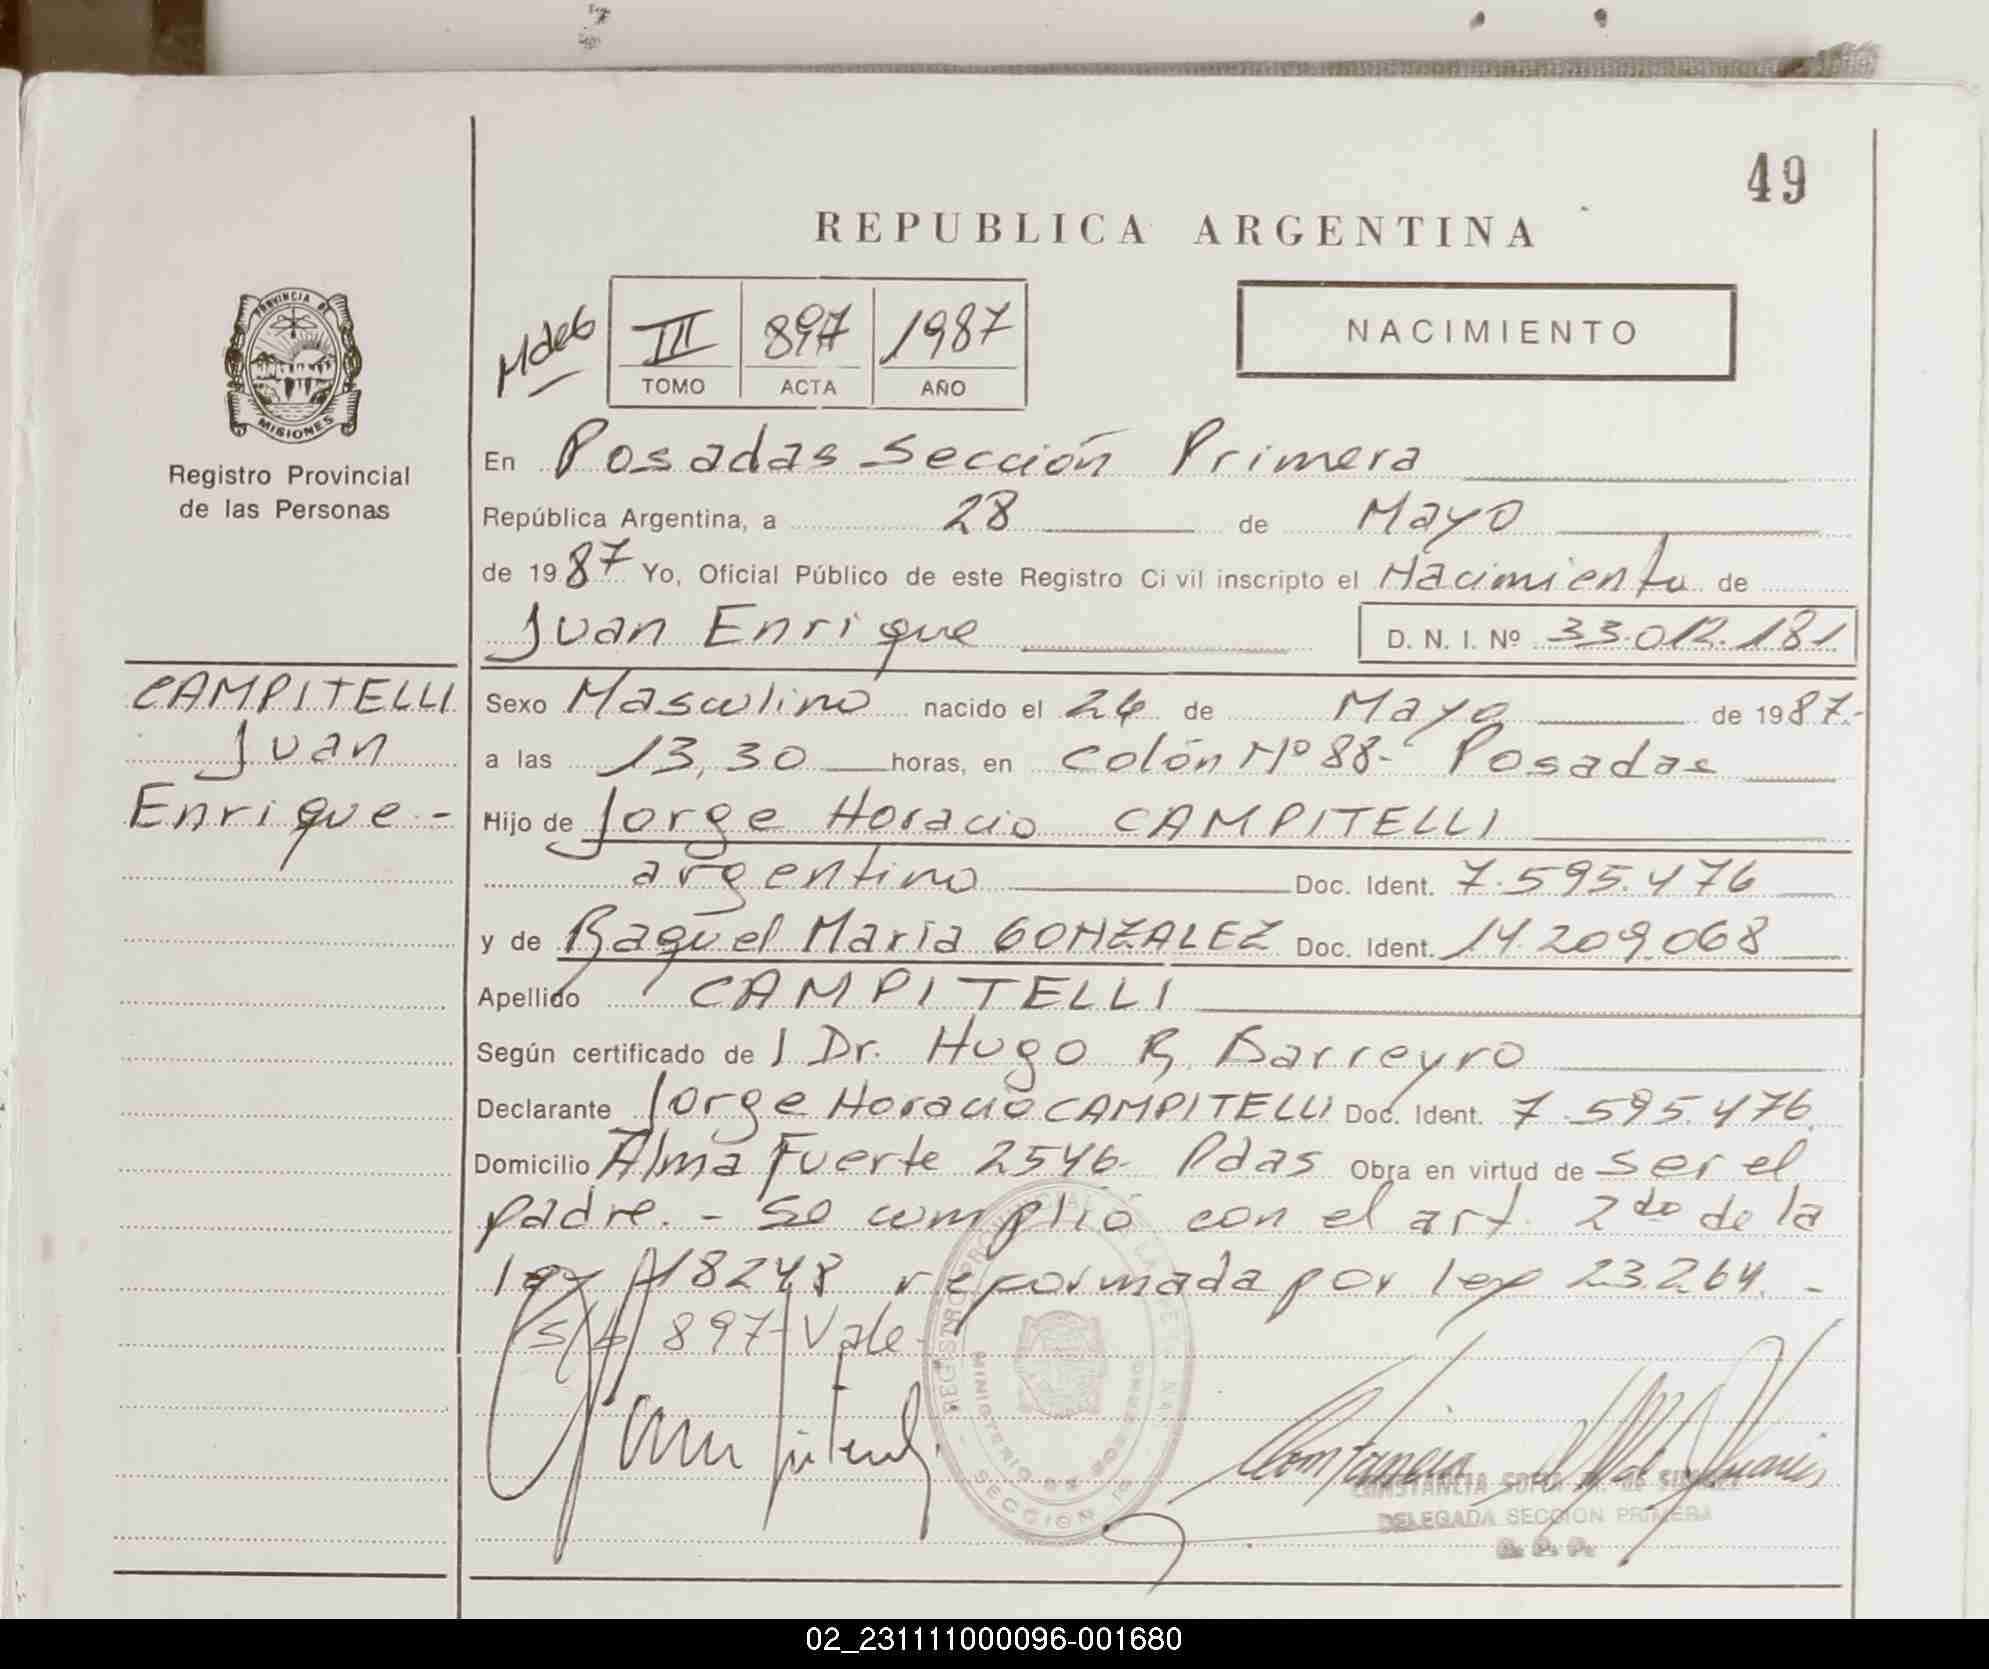 49
REPUBLICA ARGENTINA
PROVINCIA DE
MISIONES
Registro Provincial
de las Personas
III 897 1987
TOMO ACTA AÑO
NACIMIENTO
En Posadas Sección Primera
República Argentina, a 28 de Mayo
de 1987 Yo, Oficial Público de este Registro Civil inscripto el Nacimiento de
Juan Enrique D. N. I. Nº 33.012.181
CAMPITELLI
Juan
Enrique -
Sexo Masculino nacido el 26 de Mayo de 1987.-
a las 13,30 horas, en Colón Nº 88- Posadas
Hijo de Jorge Horacio CAMPITELLI
argentino Doc. Ident. 7.595.476
y de Raquel María GONZALEZ Doc. Ident. 14.209.068
Apellido CAMPITELLI
Según certificado del Dr. Hugo R. Barreyro
Declarante Jorge Horacio CAMPITELLI Doc. Ident. 7.595.476
Domicilio Alma Fuerte 2546- Pdas Obra en virtud de ser el
padre. - Se cumplió con el art. 2do de la
ley 18248 reformada por ley 23.264. -
s/b 897- Vale-
MINISTERIO DE GOBIERNO
SECCION 1ª
CONSTANCIA
DELEGADA SECCION PRIMERA
R. P. P.
02_231111000096-001680